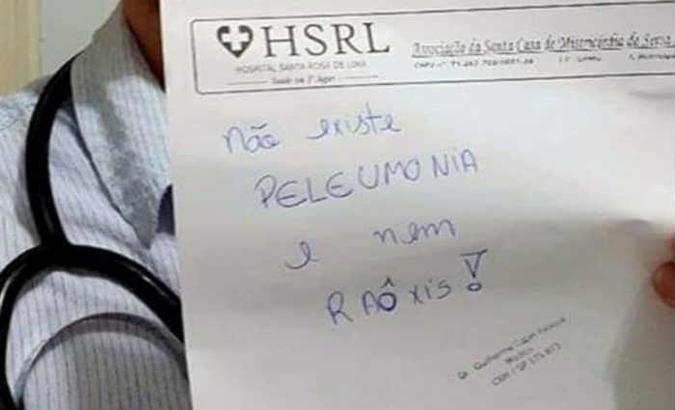 HSRL
HOSPITAL SANTA ROSA DE LIMA
Associação da Santa Casa de Misericórdia de Serra
não existe
PELEUMONIA
e nem
RAÔXIS!
Dr. Guilherme Capel
Médico